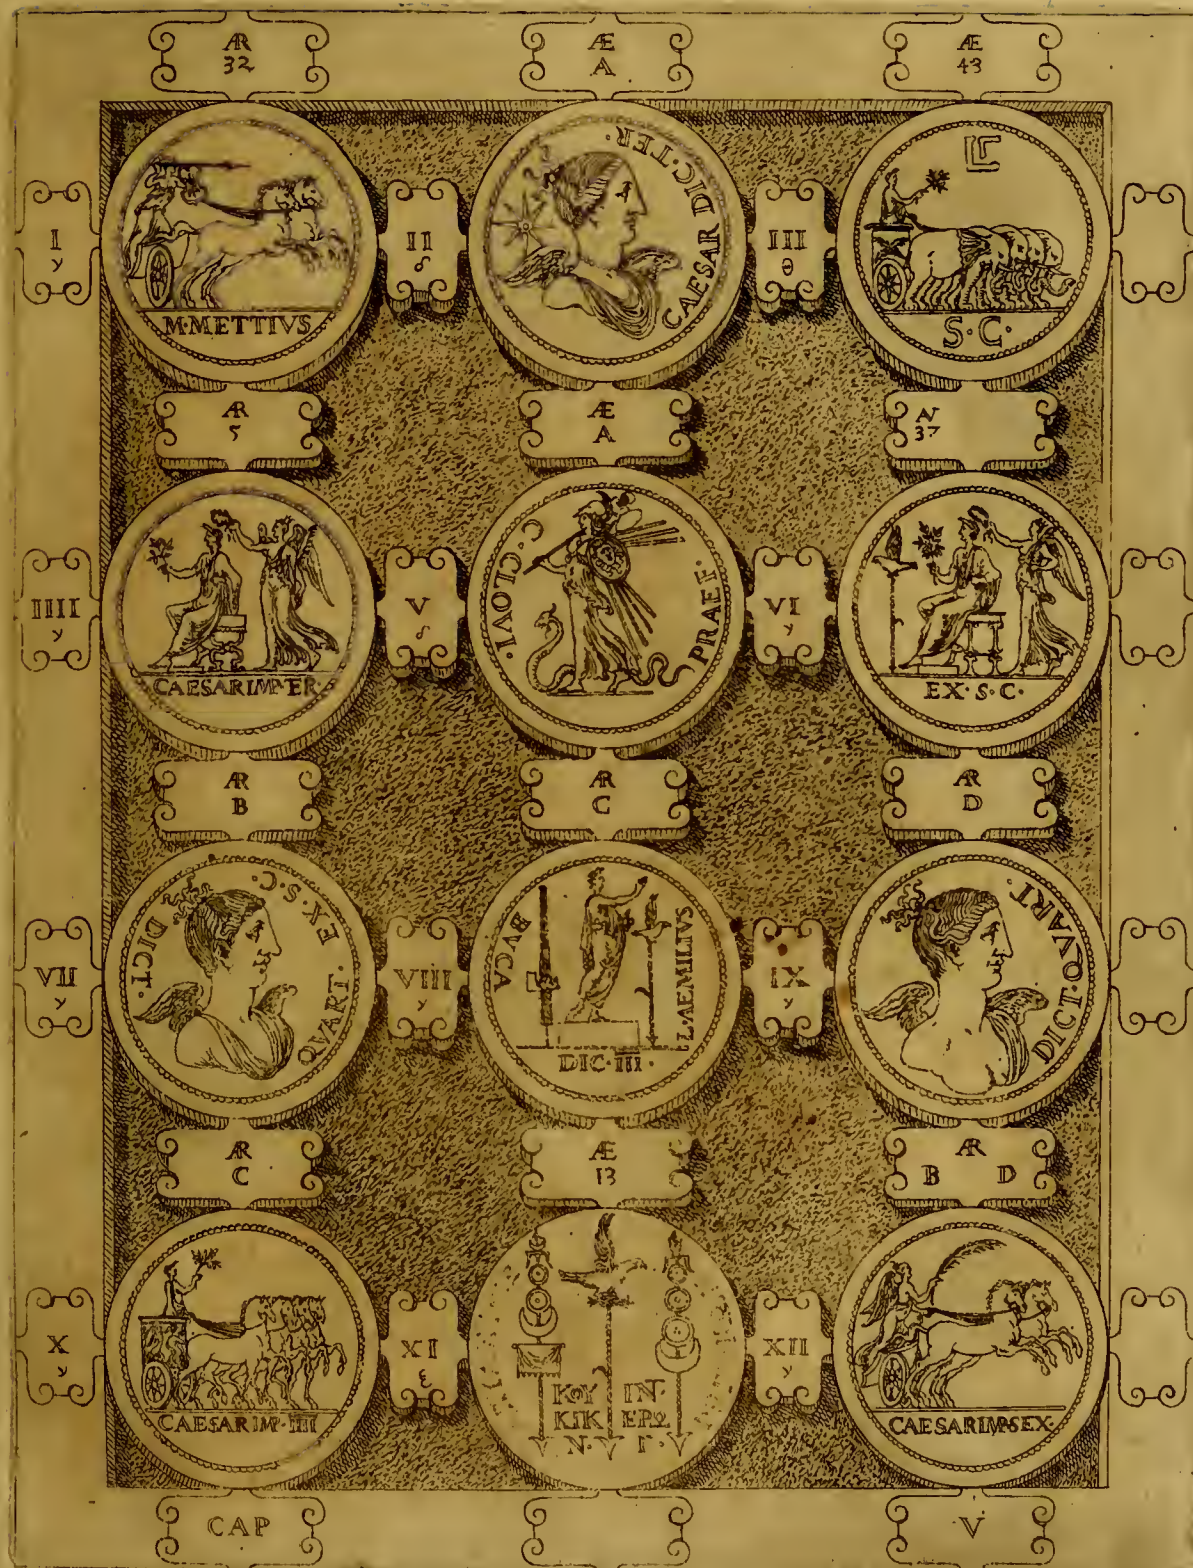 AR
32
Æ
A
Æ
43
I
y
M·METTIVS
II
CAESAR DIC·TER·
III
θ
S·C·
AR
5
Æ
A
37
IIII
y
CAESAR IMP ER
V
C·CLOVI·
PRAEF·
VI
y
EX·S·C·
AR
B
AR
C
AR
D
VII
y
DICT·
QVART·
EX·S·C·
VIII
y
BVCA
L·AEMILIVS
DIC·IIII·
IX
y
DICT·QVART·
AR
C
Æ
13
AR
B D
X
y
CAESAR IMP·IIII
XI
ε
ΚΟΥ ΙΝ·
ΚΙΚ ΕΡΩ
Υ·Ν·Υ·Γ·Υ
XII
y
CAESAR IMP SEX·
CAP
V